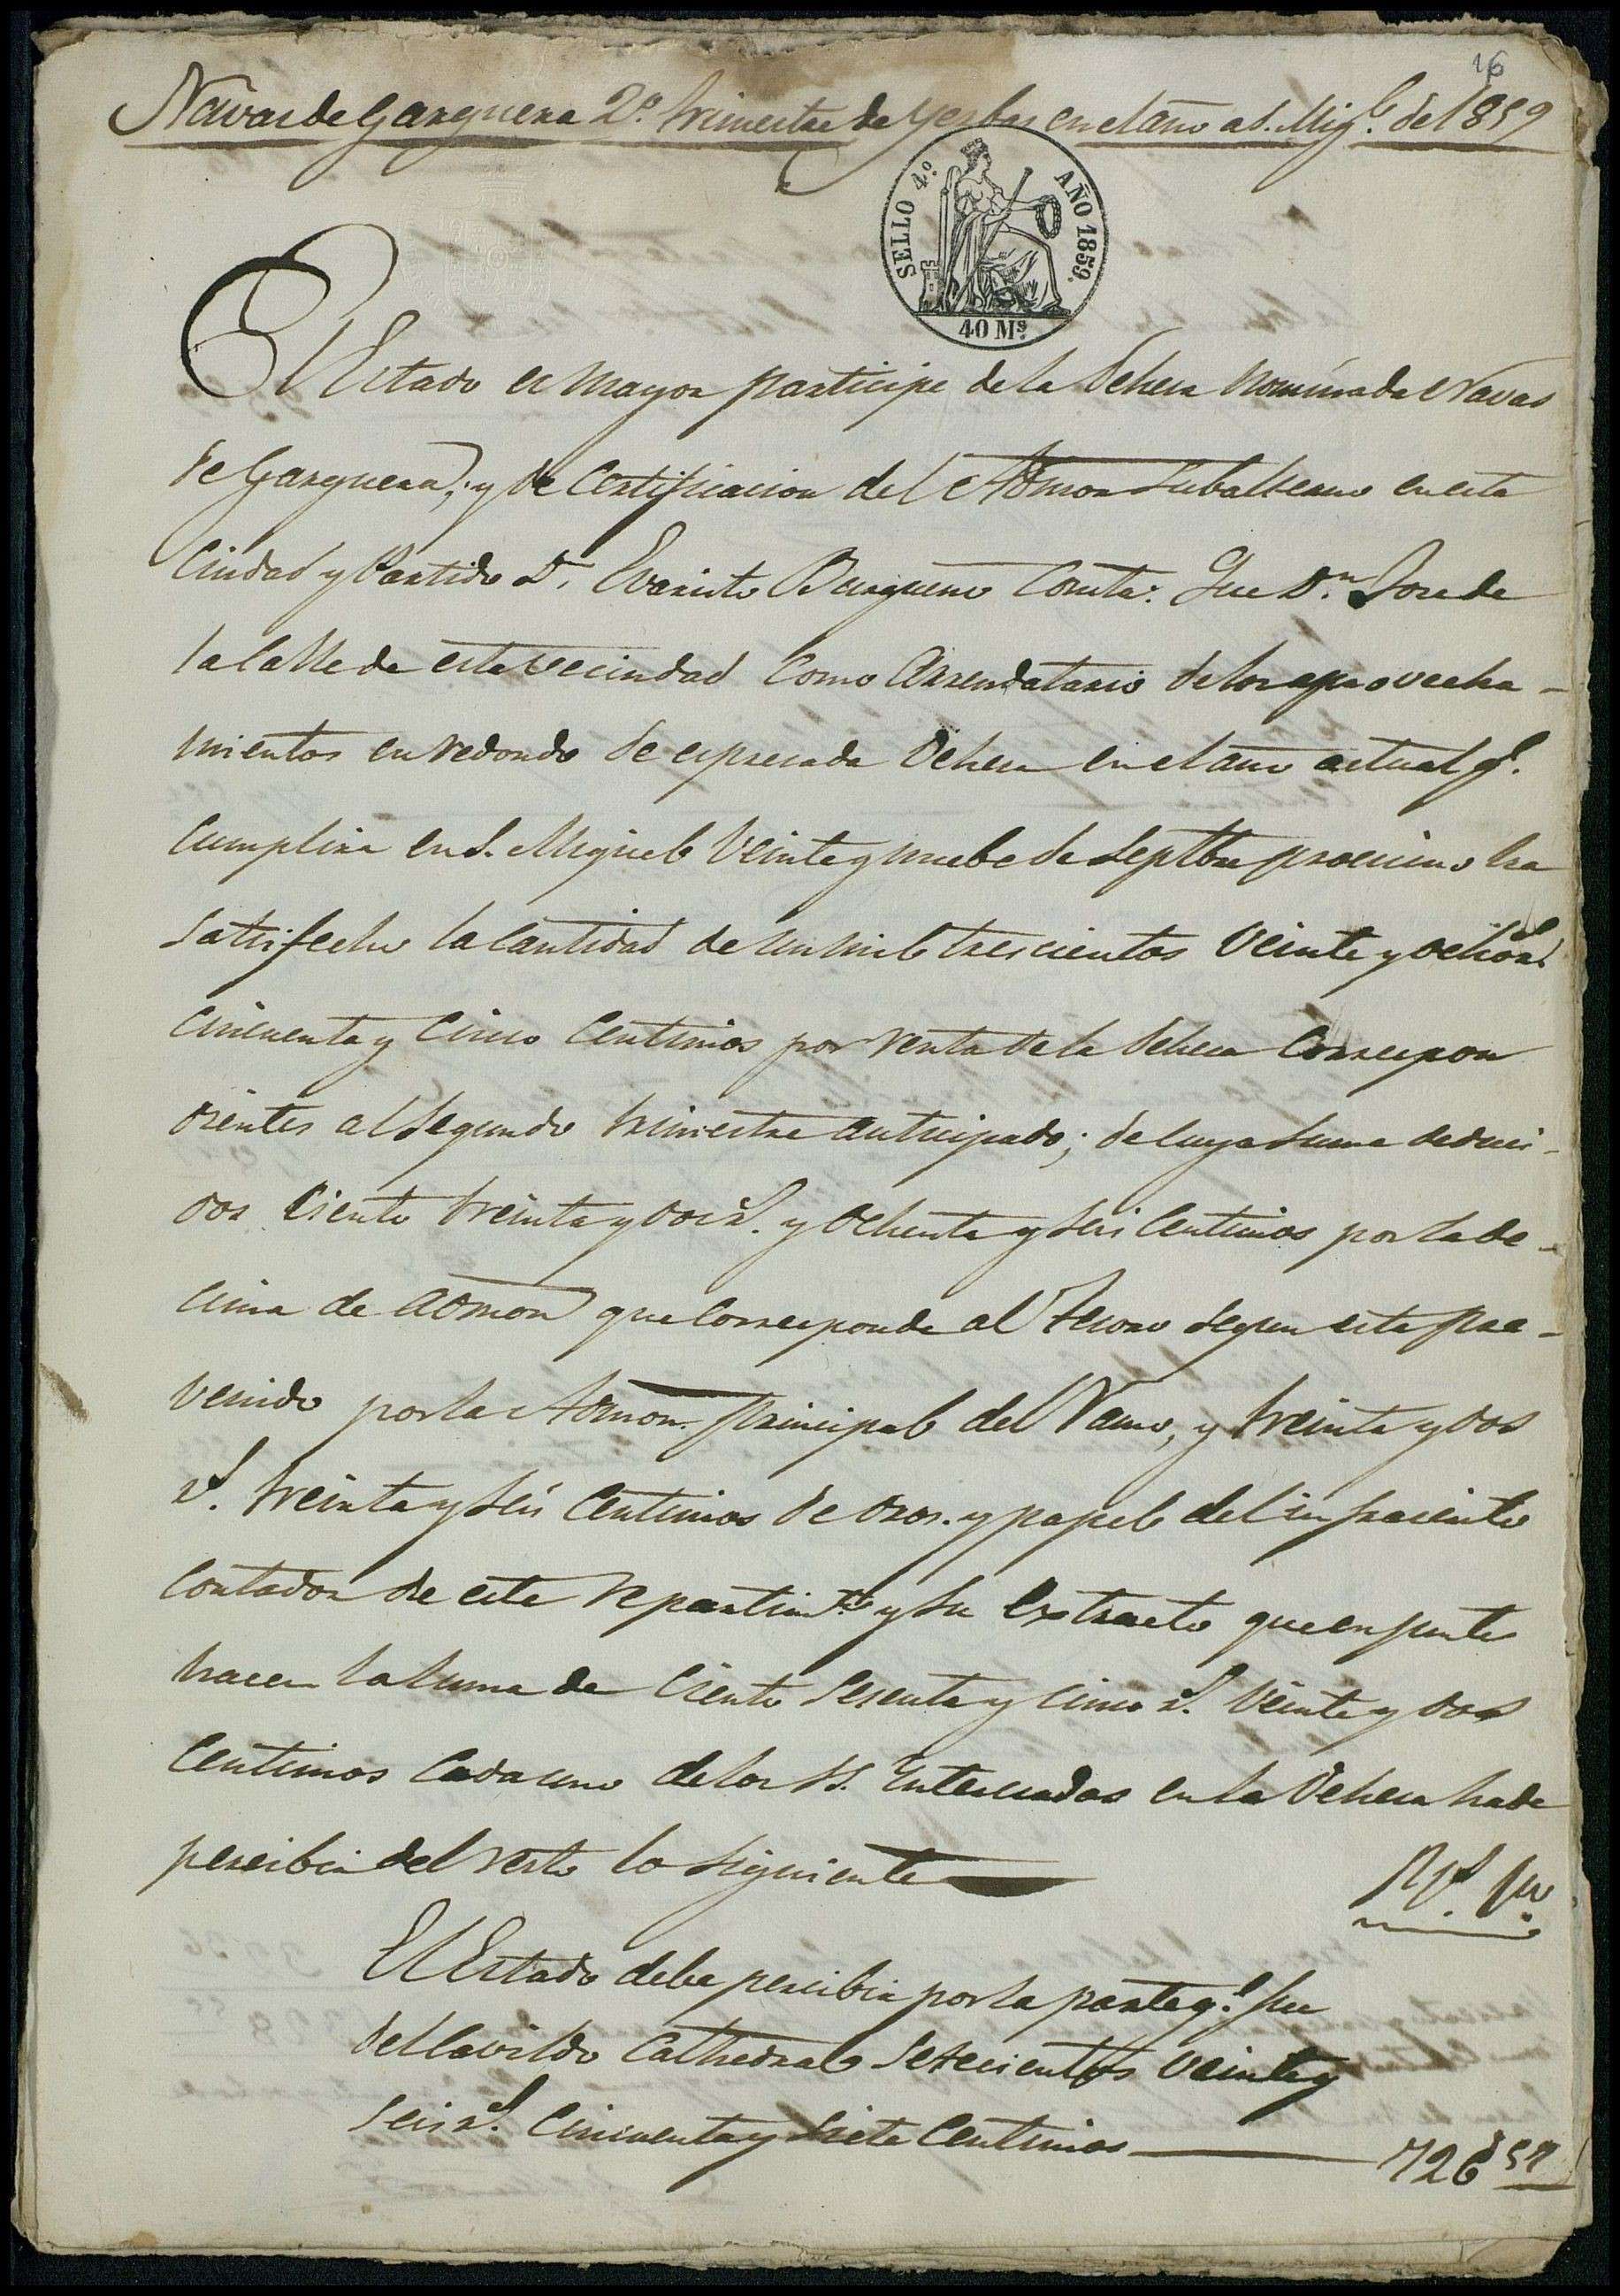 16
Navas de Garguera 2º trimestre de yerbas en el año a S. Migl. del 859
SELLO 4º AÑO 1859.
40 Ms.
El Estado es mayor participe de la Dehesa nominada Navas
de Garguera; y de Certificacion del Admor Subalterno en esta
Ciudad y Partido D. Evaristo Burgueño Consta: Que Dn. Jose de
la Calle de esta vecindad Como Arrendatario de los aprovecha-
mientos en redondo de espresada Dehesa en el año actual qe.
cumplira en S. Miguel Veinte y nuebe de Septbre procsimo ha
satisfecho la cantidad de un mil trescientos Veinte y ocho rs.
cincuenta y Cinco Centimos por renta de la Dehesa Correspon
dientes al Segundo trimestre anticipado; de cuya suma deduci-
dos Ciento treinta y dos rs. y Ochenta y seis Centimos por la de-
cima de Admon que Corresponde al Tesoro segun esta pre-
venido por la Admon. principal del Ramo, y treinta y dos
rs. treinta y seis Centimos de dros. y papel del infraescrito
Contador de este repartimto. y su Extracto que en junto
hacen la suma de Ciento Sesenta y cinco rs. Veinte y dos
Centimos Cada uno de los SS. Interesados en la Dehesa ha de
percibir del resto lo siguiente
Rs. vn.
El Estado debe percibir por la parte qe. fue
del Cavildo Cathedral Setecientos Veinte y
seis rs. Cincuenta y siete Centimos 726 57